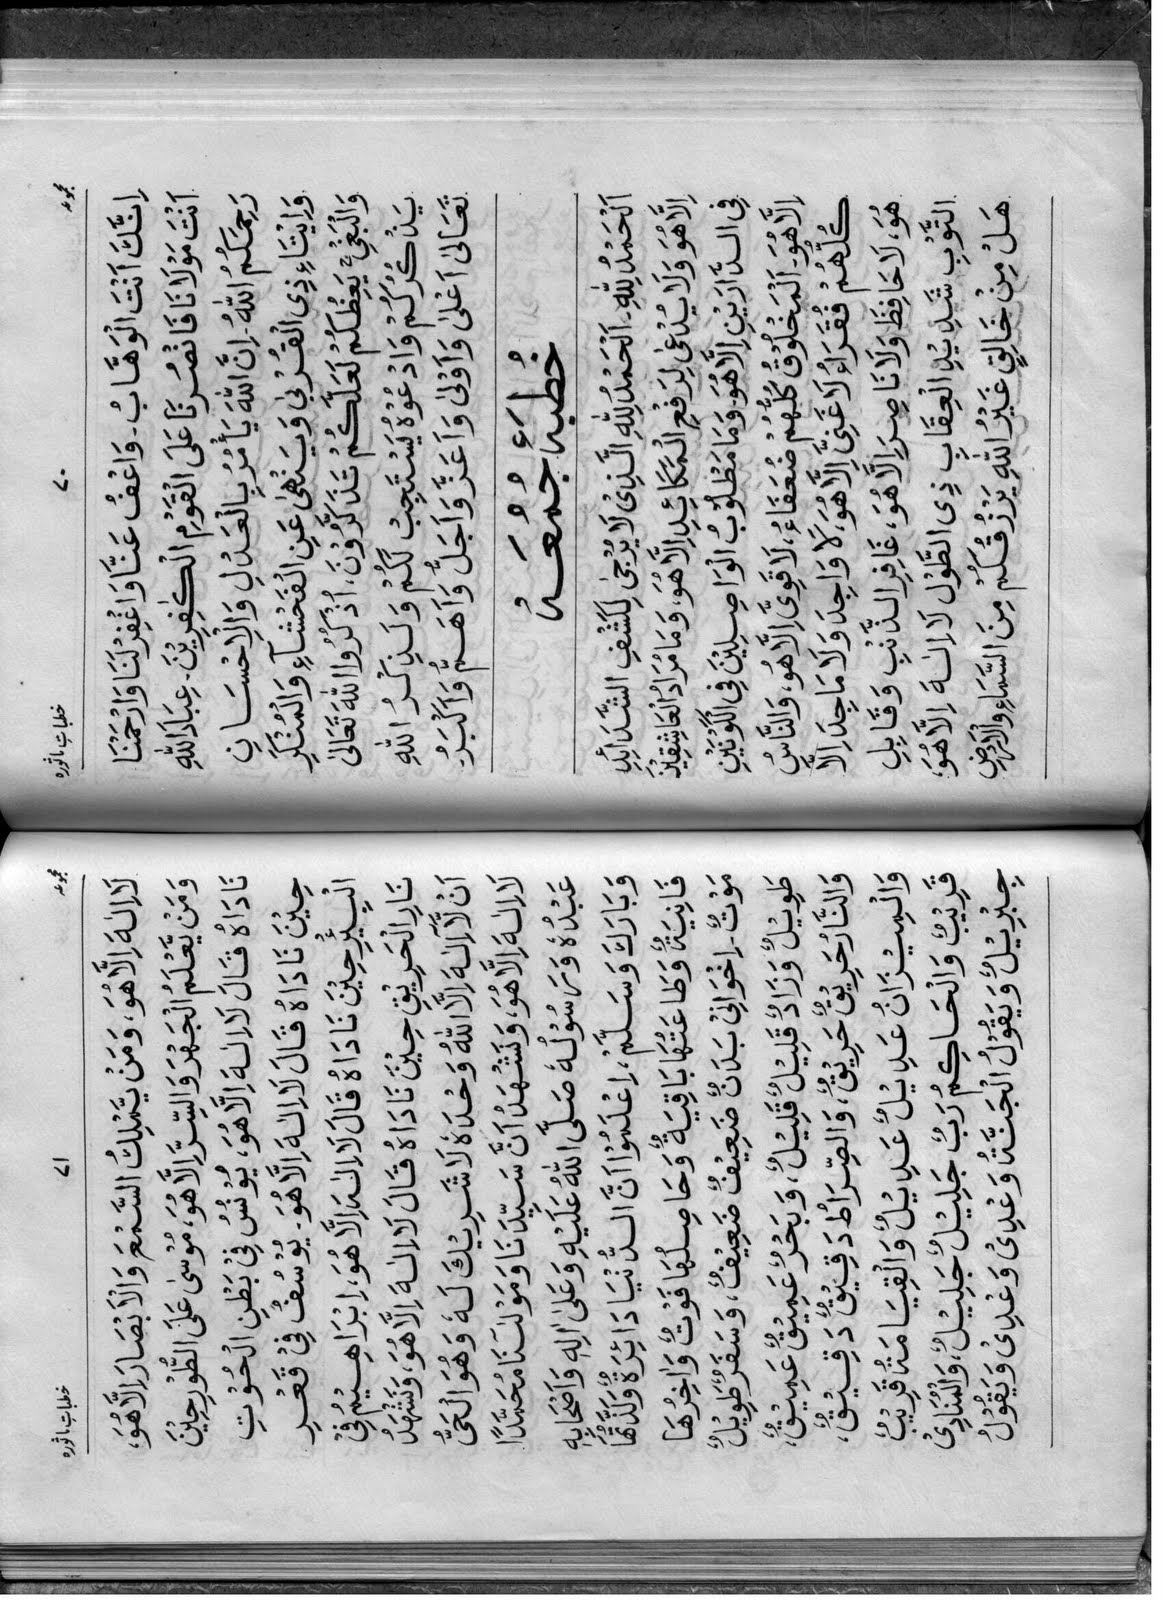 مجموعہ ۷۰ خطبات ماثورہ
اِنَّكَ اَنْتَ الْوَهَّابُ۔ وَاعْفُ عَنَّا وَاغْفِرْ لَنَا وَارْحَمْنَا
اَنْتَ مَوْلَانَا فَانْصُرْنَا عَلَى الْقَوْمِ الْكٰفِرِيْنَ۔ عِبَادَ اللّٰهِ
رَحِمَكُمُ اللّٰهُ۔ اِنَّ اللّٰهَ يَأْمُرُ بِالْعَدْلِ وَالْاِحْسَانِ
وَاِيْتَاءِ ذِى الْقُرْبٰى وَيَنْهٰى عَنِ الْفَحْشَآءِ وَالْمُنْكَرِ
وَالْبَغْيِ يَعِظُكُمْ لَعَلَّكُمْ تَذَكَّرُوْنَ، اُذْكُرُوا اللّٰهَ تَعَالٰى
يَذْكُرْكُمْ وَادْعُوْهُ يَسْتَجِبْ لَكُمْ وَلَذِكْرُ اللّٰهِ
تَعَالٰى اَعْلٰى وَاَوْلٰى وَاَعَزُّ وَاَجَلُّ وَاَهَمُّ وَاَكْبَرُ۔
خُطْبَہ جُمُعَہ
اَلْحَمْدُ لِلّٰهِ۔ اَلْحَمْدُ لِلّٰهِ الَّذِىْ لَا يُرْجٰى لِكَشْفِ الشَّدَائِدِ
اِلَّا هُوَ وَلَا يُدْعٰى لِرَفْعِ الْمَكَائِدِ اِلَّا هُوَ، وَمَا مُرَادُ الْعَاشِقِيْنَ
فِى الدَّارَيْنِ اِلَّا هُوَ۔ وَمَا مَطْلُوْبُ الْوَاصِلِيْنَ فِى الْكَوْنَيْنِ
اِلَّا هُوَ۔ اَلْمَخْلُوْقُ كُلُّهُمْ ضُعَفَاءُ، لَا قَوِىَّ اِلَّا هُوَ، وَالنَّاسُ
كُلُّهُمْ فُقَرَاءُ لَا غَنِىَّ اِلَّا هُوَ، لَا وَاجِدَ وَلَا مَاجِدَ اِلَّا
هُوَ، لَا حَافِظَ وَلَا نَاصِرَ اِلَّا هُوَ، غَافِرِ الذَّنْبِ وَقَابِلِ
التَّوْبِ شَدِيْدِ الْعِقَابِ ذِى الطَّوْلِ لَا اِلٰهَ اِلَّا هُوَ،
هَلْ مِنْ خَالِقٍ غَيْرُ اللّٰهِ يَرْزُقُكُمْ مِنَ السَّمَاءِ وَالْاَرْضِ
مجموعہ ۷۱ خطبات ماثورہ
لَا اِلٰهَ اِلَّا هُوَ، وَمَنْ يَّمْلِكُ السَّمْعَ وَالْاَبْصَارَ اِلَّا هُوَ،
وَمَنْ يَّعْلَمُ الْجَهْرَ وَالسِّرَّ اِلَّا هُوَ، مُوْسٰى عَلَى الطُّوْرِ حِيْنَ
نَادَاهُ قَالَ لَا اِلٰهَ اِلَّا هُوَ، يُوْنُسُ فِىْ بَطْنِ الْحُوْتِ
حِيْنَ نَادَاهُ قَالَ لَا اِلٰهَ اِلَّا هُوَ۔ يُوْسُفُ فِىْ قَعْرِ
الْبِئْرِ حِيْنَ نَادَاهُ قَالَ لَا اِلٰهَ اِلَّا هُوَ، اِبْرَاهِيْمُ فِىْ
نَارِ الْحَرِيْقِ حِيْنَ نَادَاهُ قَالَ لَا اِلٰهَ اِلَّا هُوَ، وَنَشْهَدُ
اَنْ لَّا اِلٰهَ اِلَّا اللّٰهُ وَحْدَهٗ لَا شَرِيْكَ لَهٗ وَهُوَ الْحَىُّ
لَا اِلٰهَ اِلَّا هُوَ، وَنَشْهَدُ اَنَّ سَيِّدَنَا وَمَوْلٰنَا مُحَمَّدًا
عَبْدُهٗ وَرَسُوْلُهٗ صَلَّى اللّٰهُ عَلَيْهِ وَعَلٰى اٰلِهٖ وَاَصْحَابِهٖ
وَبَارَكَ وَسَلَّمْ، اِعْلَمُوْا اَنَّ الدُّنْيَا دَائِرَةٌ وَلَذَّتُهَا
فَانِيَةٌ وَطَاعَتُهَا بَاقِيَةٌ وَحَاصِلُهَا فَوْتٌ وَاٰخِرُهَا
مَوْتٌ۔ اِخْوَانِىْ بَدَنٌ ضَعِيْفٌ ضَعِيْفٌ، وَسَفَرٌ طَوِيْلٌ
طَوِيْلٌ وَزَادٌ قَلِيْلٌ قَلِيْلٌ، وَبَحْرٌ عَمِيْقٌ عَمِيْقٌ،
وَالنَّارُ حَرِيْقٌ حَرِيْقٌ، وَالصِّرَاطُ دَقِيْقٌ دَقِيْقٌ،
وَالْمِيْزَانُ عَدِيْلٌ عَدِيْلٌ وَالْقِيَامَةُ قَرِيْبٌ
قَرِيْبٌ وَالْحَاكِمُ رَبٌّ جَلِيْلٌ جَلِيْلٌ، وَالْمُنَادِىْ
جِبْرِيْلُ وَيَقُوْلُ الْجَنَّةُ وَعْدِىْ وَعْدِىْ وَيَقُوْلُ